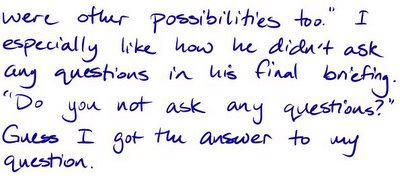 were other possibilities too." I
especially like how he didn't ask
any questions in his final briefing.
"Do you not ask any questions?"
Guess I got the answer to my
question.